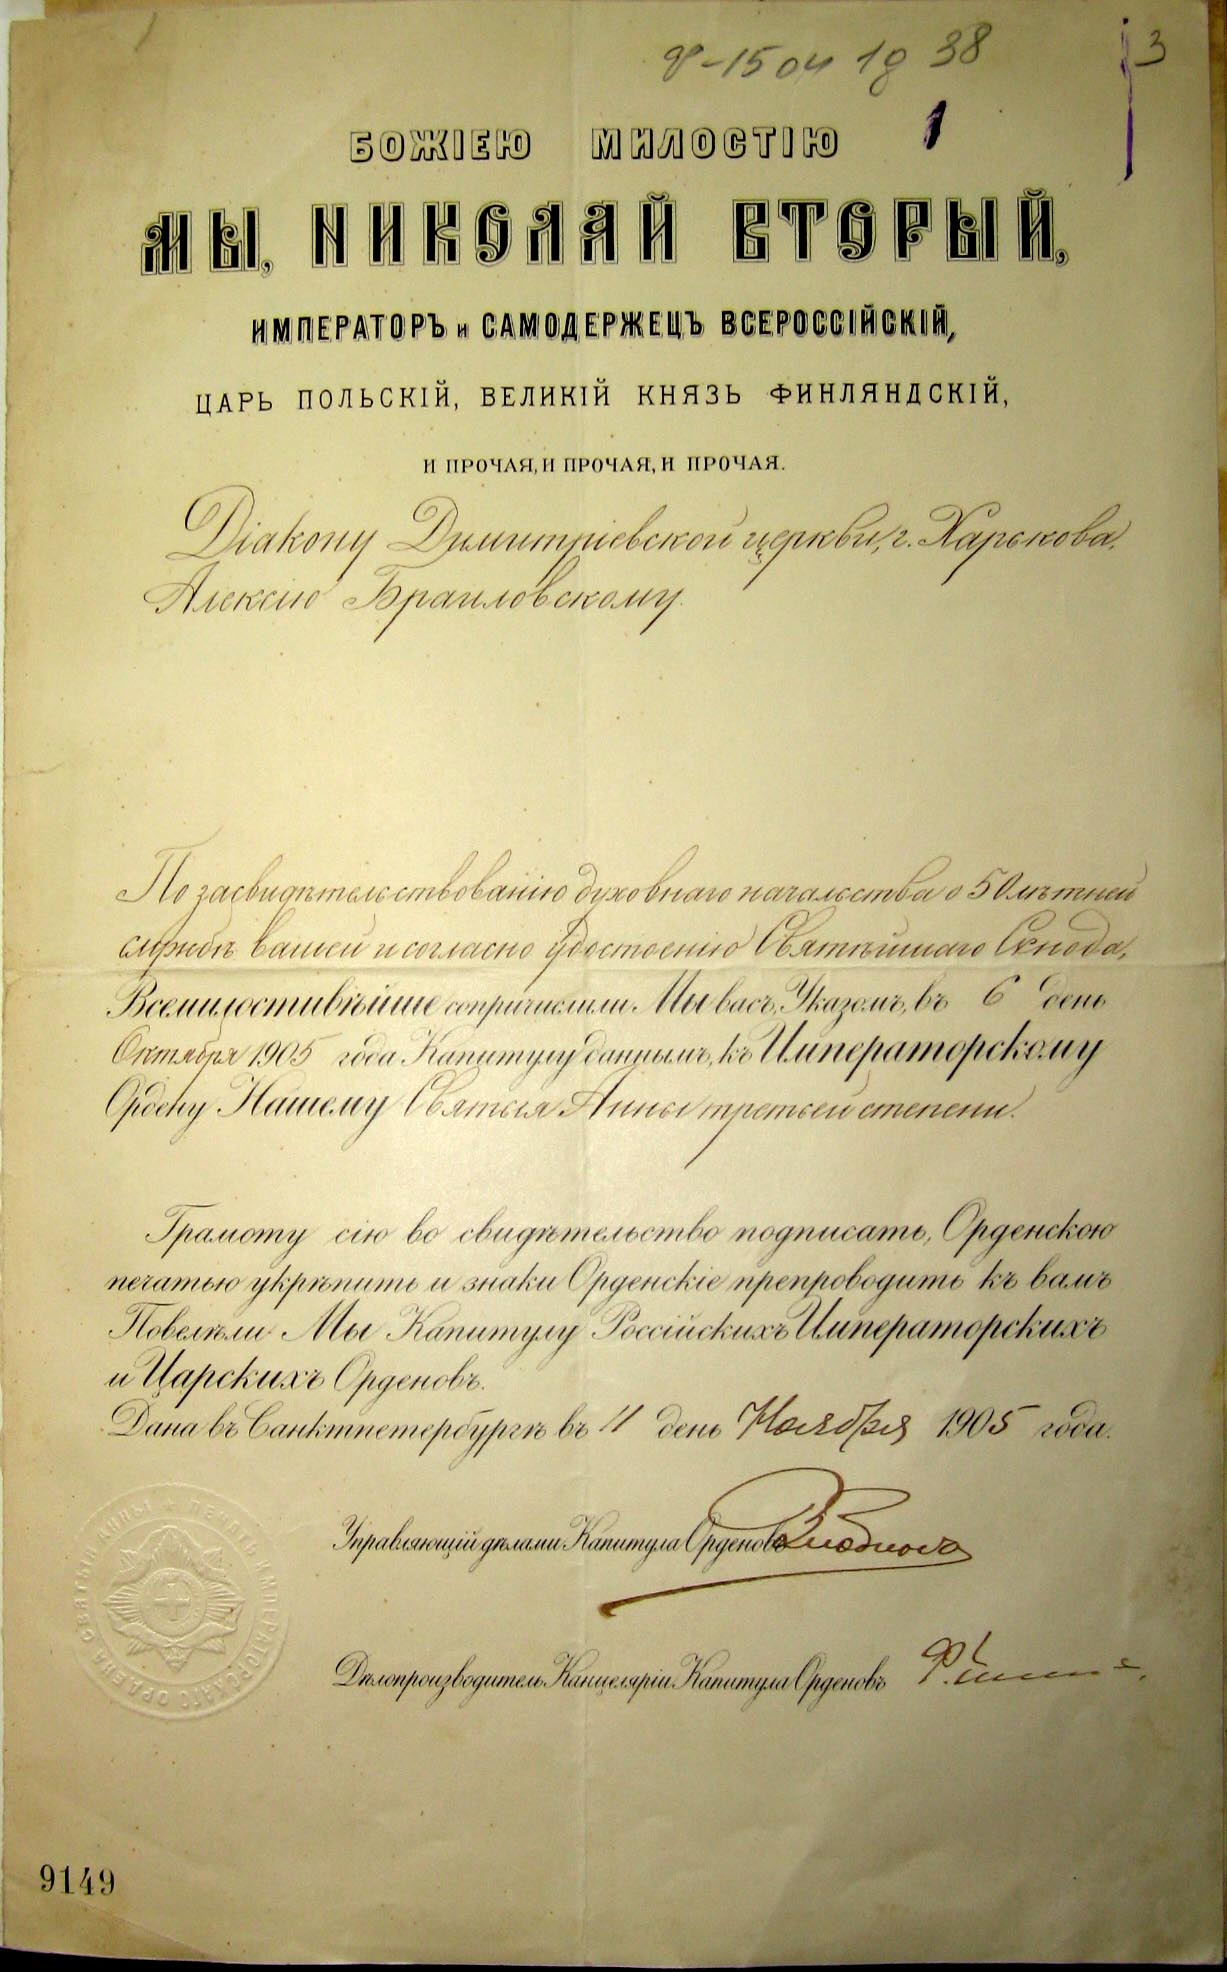 Ф-1504 1д 38
3
1
БОЖІЕЮ МИЛОСТІЮ
МЫ, НИКОЛАЙ ВТОРЫЙ,
ИМПЕРАТОРЪ и САМОДЕРЖЕЦЪ ВСЕРОССІЙСКІЙ,
ЦАРЬ ПОЛЬСКІЙ, ВЕЛИКІЙ КНЯЗЬ ФИНЛЯНДСКІЙ,
И ПРОЧАЯ, И ПРОЧАЯ, И ПРОЧАЯ.
Діакону Димитріевской церкви, г. Харькова,
Алексію Браиловскому.
По засвидѣтельствованію духовнаго начальства о 50 лѣтней
службѣ вашей и согласно удостоенію Святѣйшаго Сѵнода,
Всемилостивѣйше сопричислили Мы васъ, Указомъ, въ 6 день
Октября 1905 года Капитулу даннымъ, къ Императорскому
Ордену Нашему Святыя Анны третьей степени.
Грамоту сію во свидѣтельство подписать, Орденскою
печатью укрѣпить и знаки Орденскіе препроводить къ вамъ
Повелѣли Мы Капитулу Россійскихъ Императорскихъ
и Царскихъ Орденовъ.
Дана въ Санктпетербургѣ въ 11 день Ноября 1905 года.
Управляющій дѣлами Капитула Орденовъ
Дѣлопроизводитель Канцеляріи Капитула Орденовъ
ПЕЧАТЬ ИМПЕРАТОРСКАГО ОРДЕНА СВЯТЫЯ АННЫ
9149